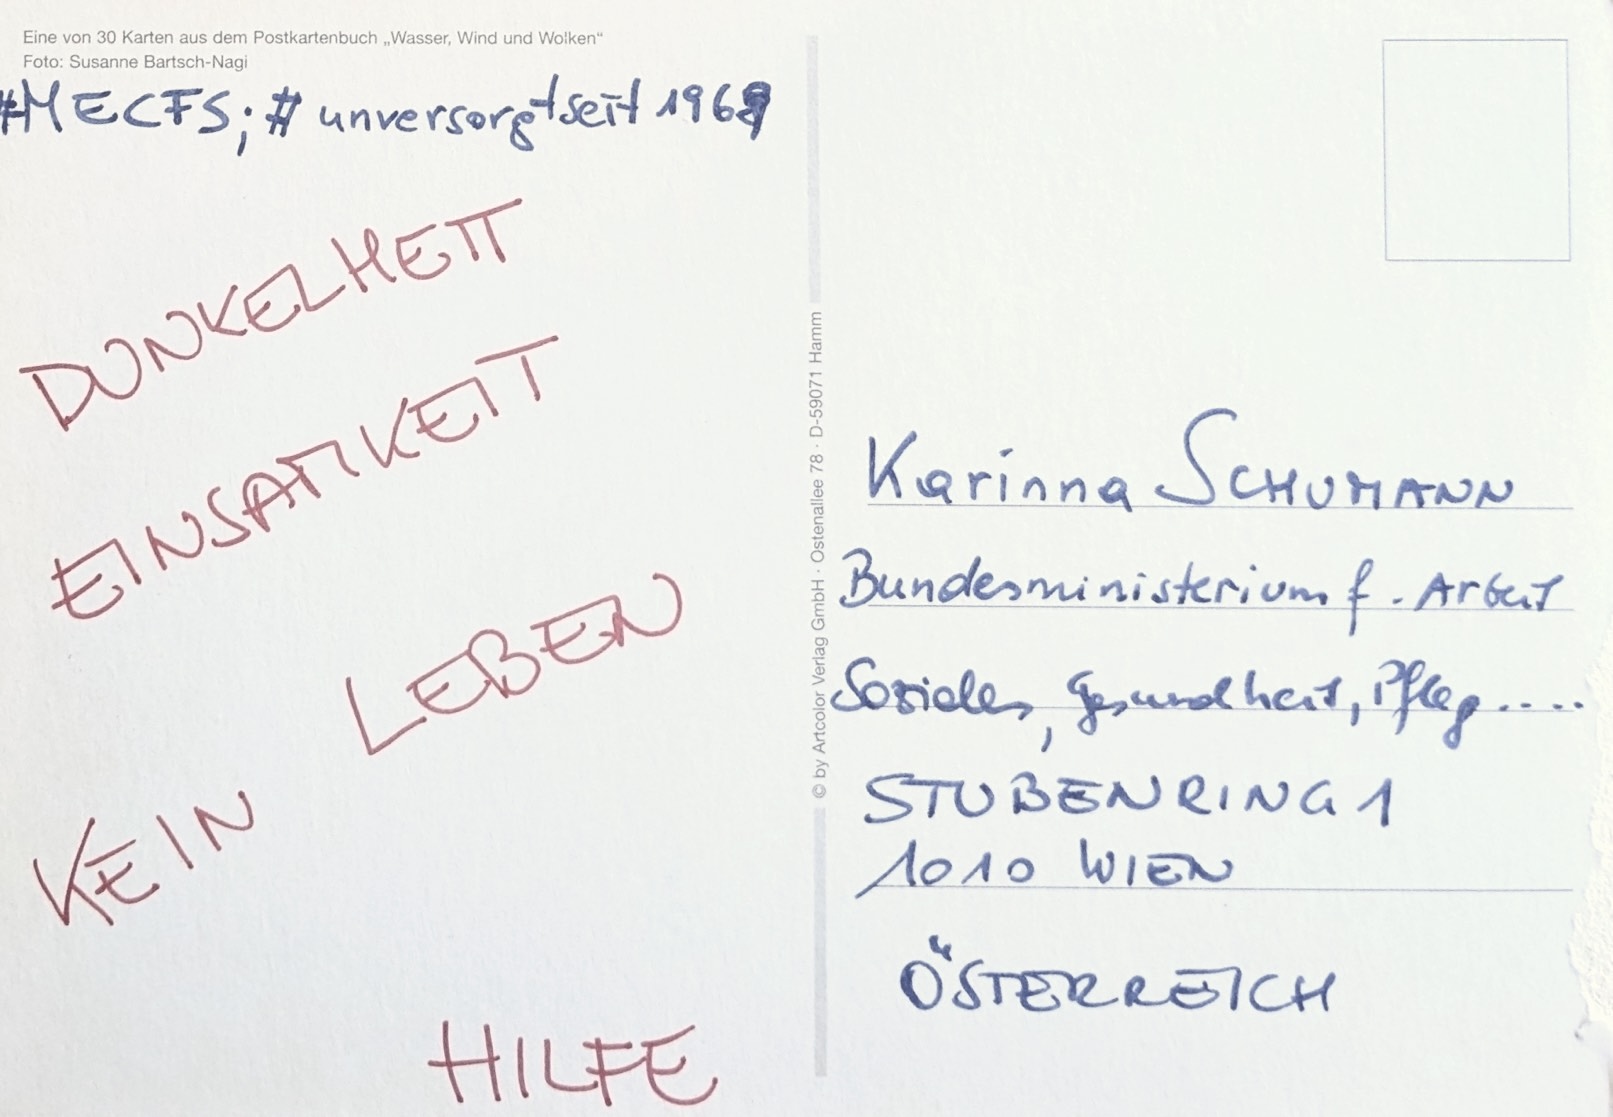 Eine von 30 Karten aus dem Postkartenbuch „Wasser, Wind und Wolken“
Foto: Susanne Bartsch-Nagi
#MECFS; # unversorgtseit 1969
DUNKELHEIT
EINSAMKEIT
LEBEN
KEIN
HILFE
© by Artcolor Verlag GmbH · Ostenallee 78 · D-59071 Hamm
Karinna SCHUMANN
Bundesministerium f. Arbeit
Soziales, Gesundheit, Pfleg.....
STUBENRING 1
1010 WIEN
ÖSTERREICH